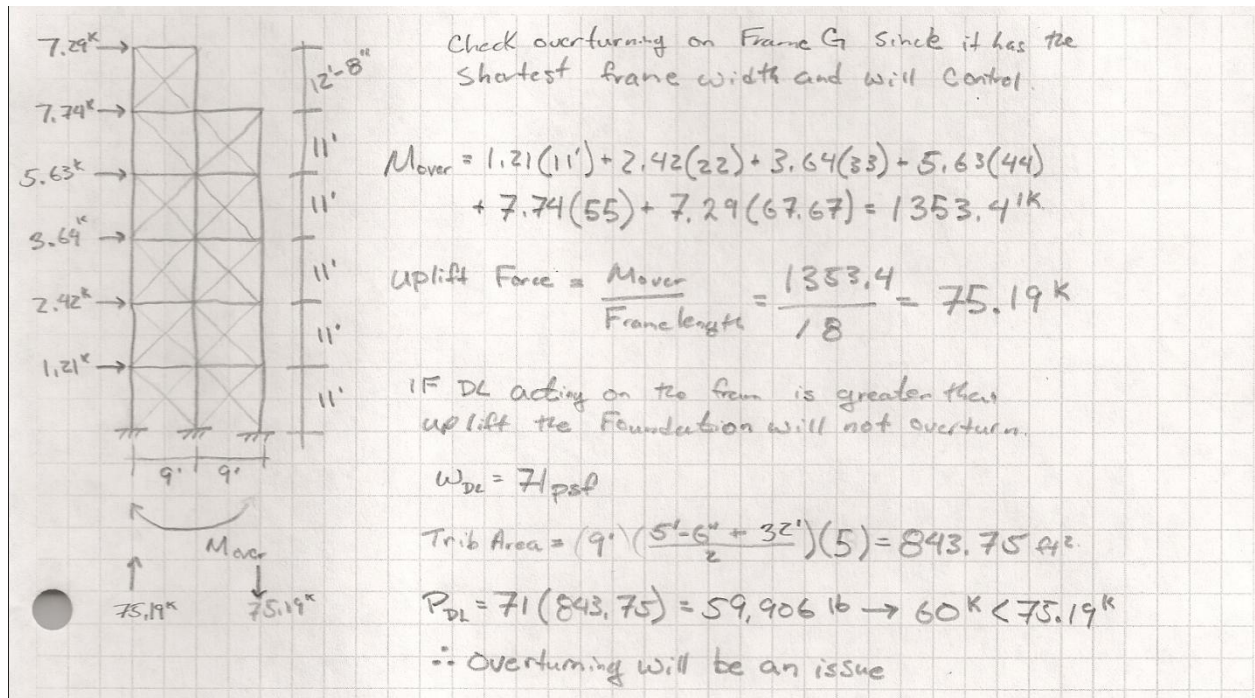 7.29ᴷ
7.74ᴷ
5.63ᴷ
3.64ᴷ
2.42ᴷ
1.21ᴷ
12'-8"
11'
11'
11'
11'
11'
9' 9'
Mover
75.19ᴷ 75.19ᴷ
Check overturning on Frame G Since it has the
Shortest frame width and will Control.
Mover = 1.21(11') + 2.42(22) + 3.64(33) + 5.63(44)
+ 7.74(55) + 7.29(67.67) = 1353.4'ᴷ
Uplift Force = Mover / Frame length = 1353.4 / 18 = 75.19ᴷ
IF DL acting on the fram is greater than
uplift the Foundation will not overturn.
W_DL = 71 psf
Trib Area = (9')(5'-6" + 32' / 2)(5) = 843.75 ft²
P_DL = 71(843.75) = 59,906 lb → 60ᴷ < 75.19ᴷ
∴ Overturning will be an issue